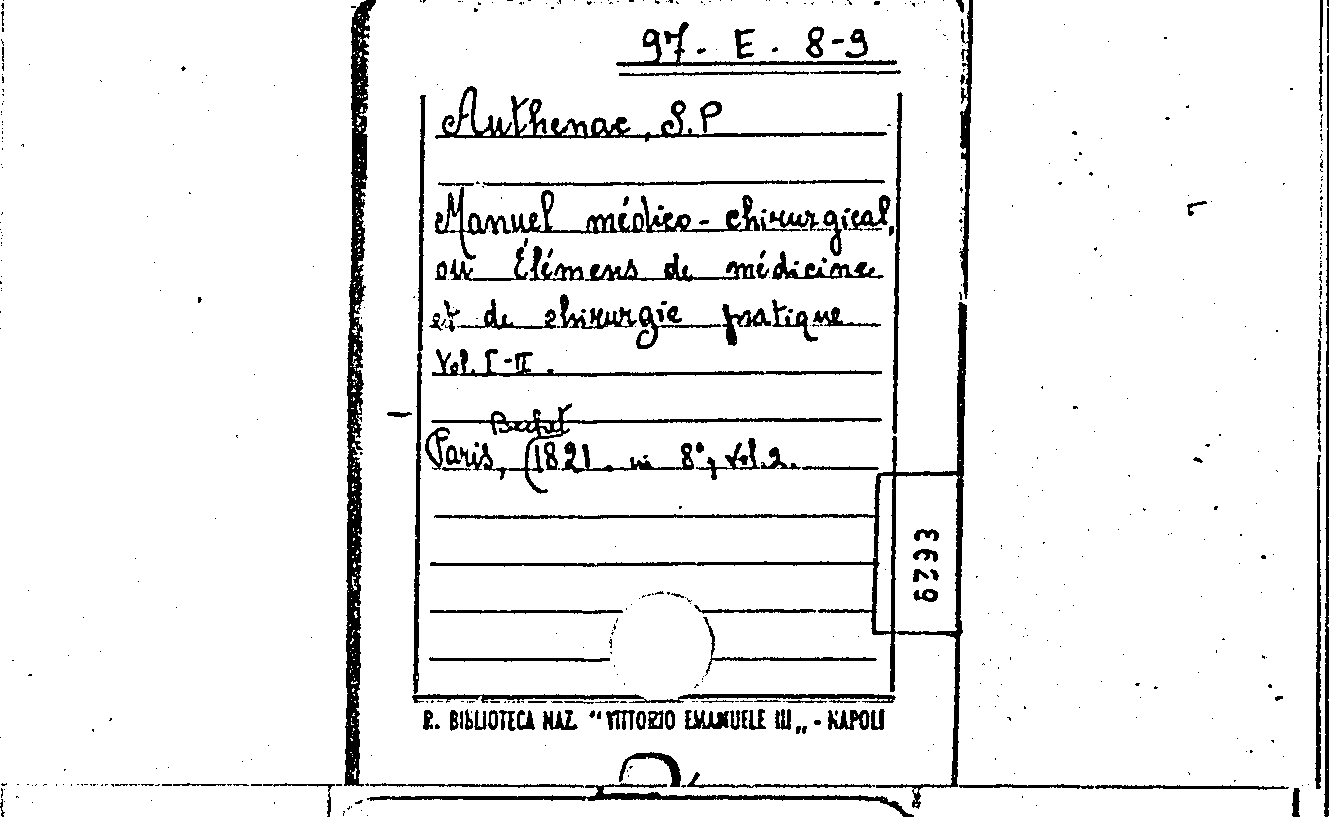 97. E. 8-9
Authenac, S.P
Manuel médico-chirurgical,
ou Élémens de médicine
et de chirurgie pratique
Vol. I-II.
Paris, 1821. in 8°, vol. 2.
6293
R. BIBLIOTECA NAZ. "VITTORIO EMANUELE III„ - NAPOLI